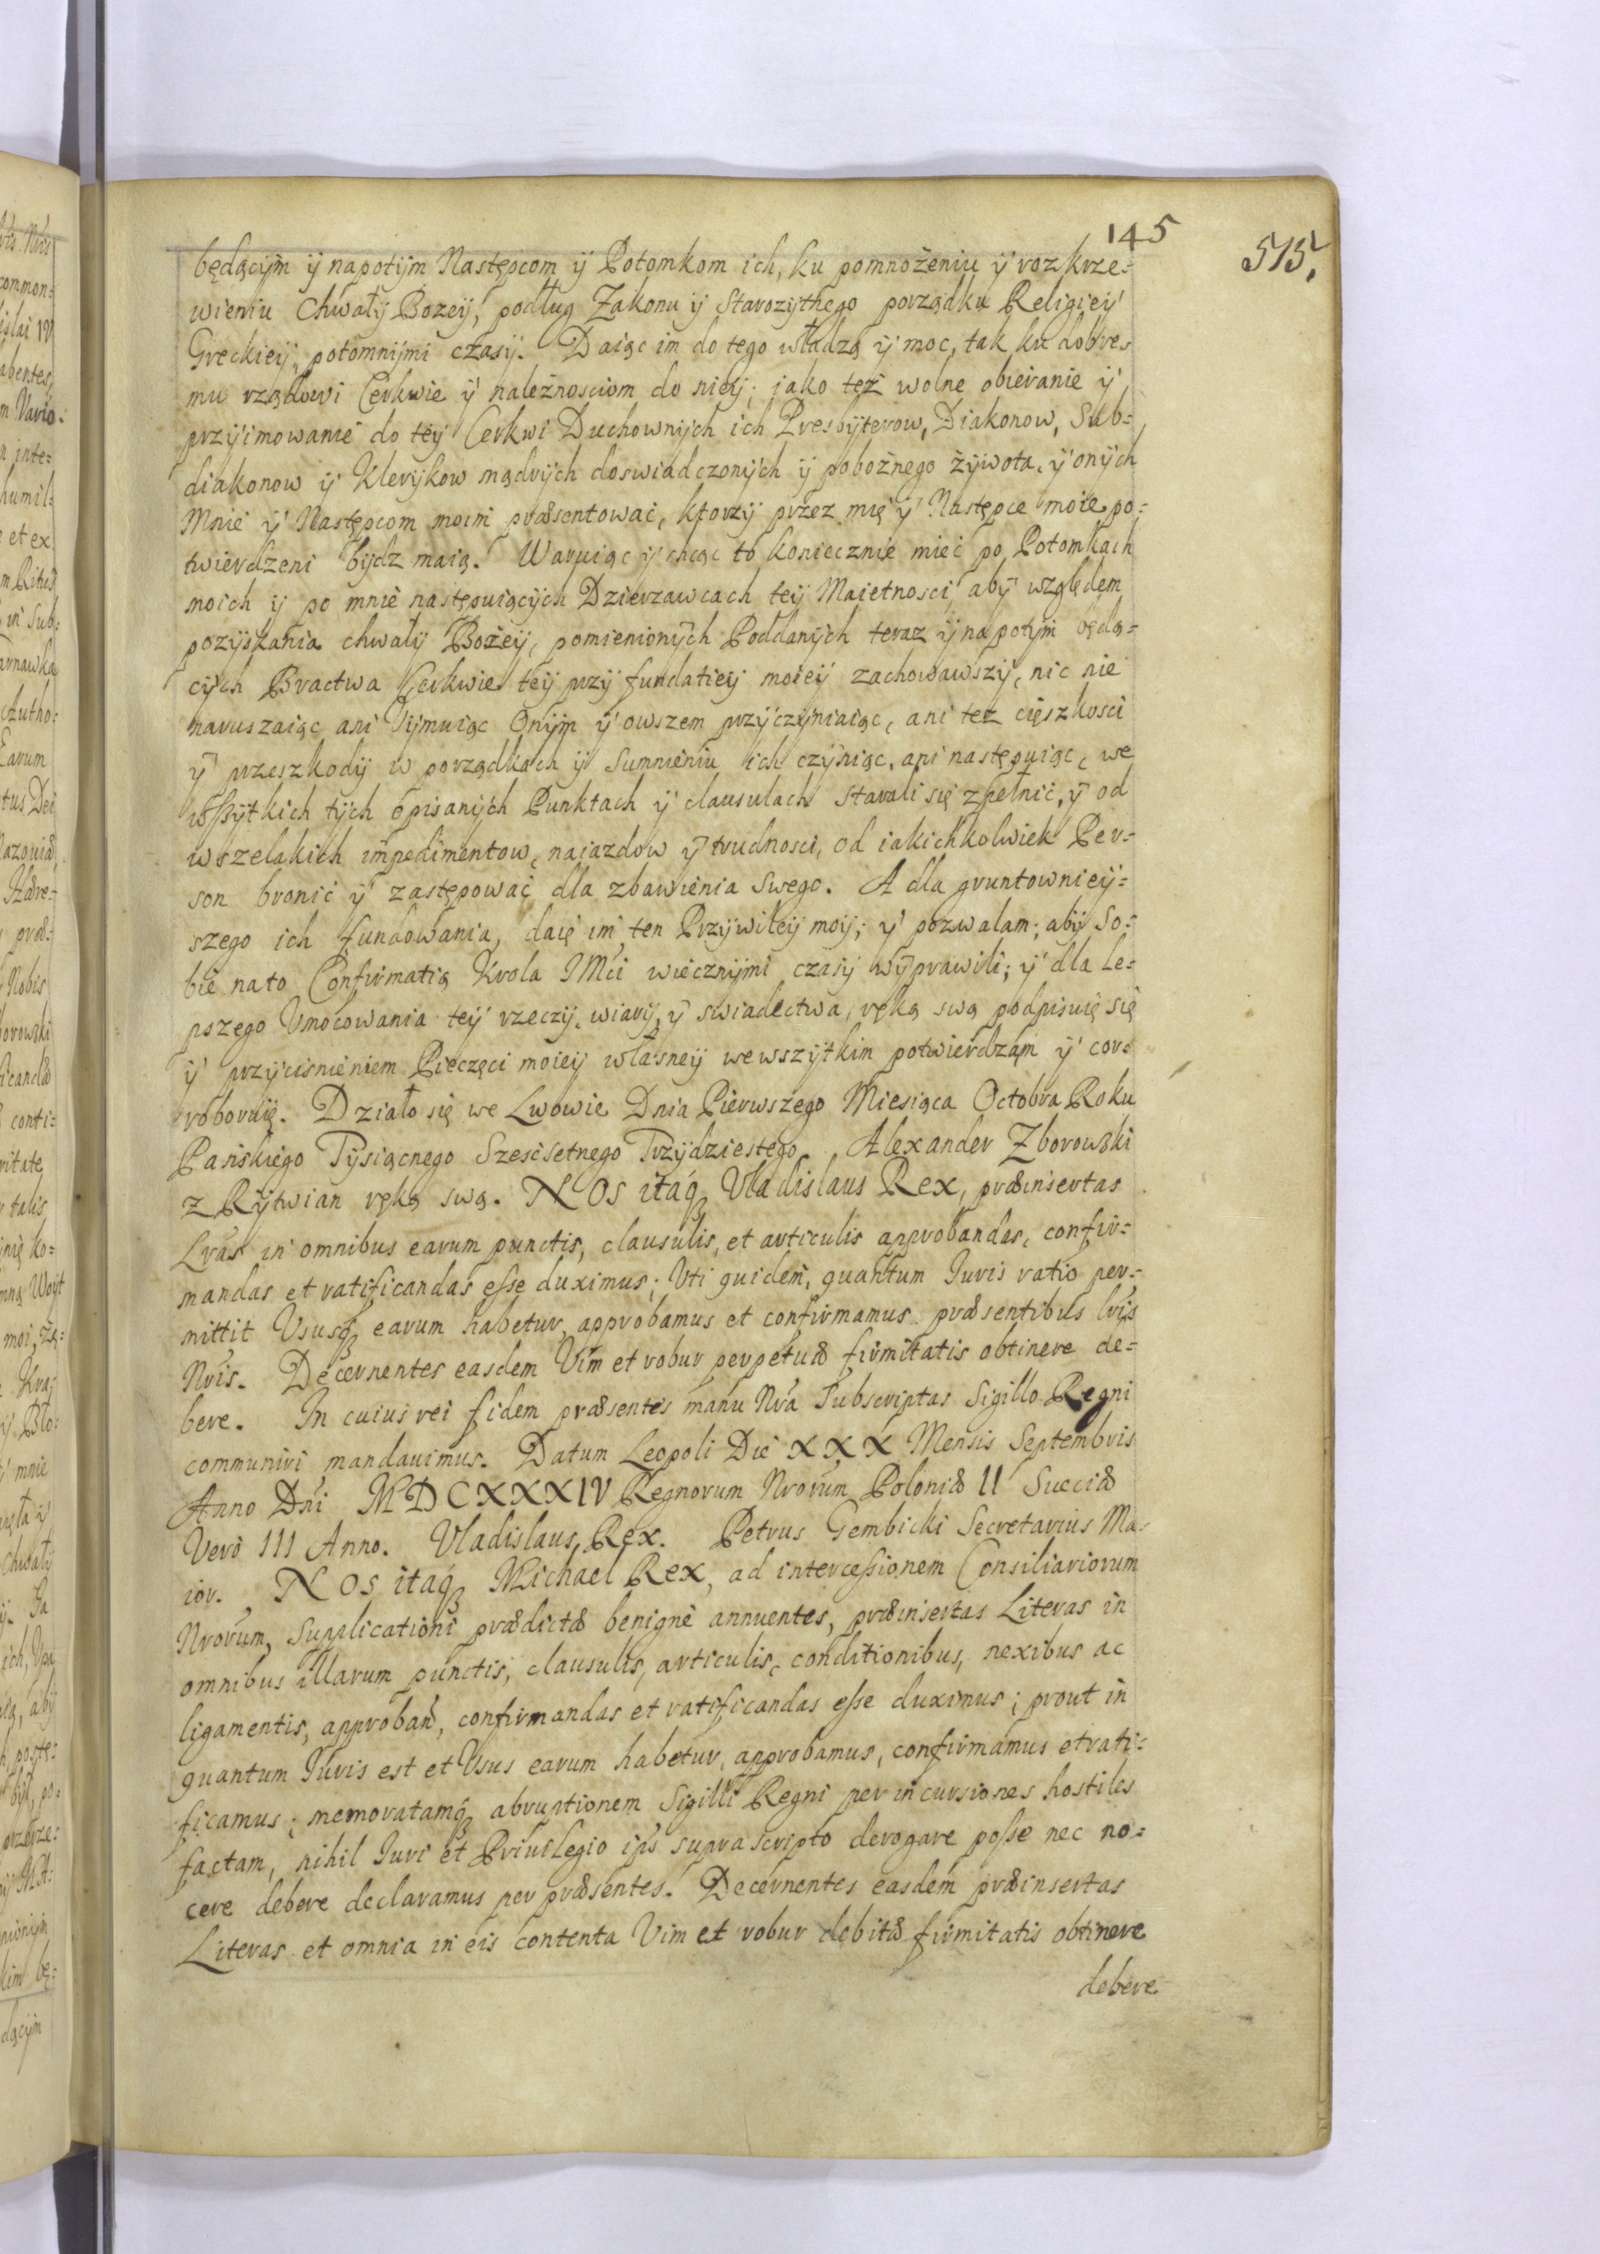 145
515.
będącym ÿ napotÿm Następcom ÿ Potomkom ich, ku pomnożeniu ÿ rozkrze-
wieniu Chwałÿ Bozeÿ, podług Zakonu ÿ Starozÿtnego porządku Religieÿ
Greckieÿ, potomnÿmi czasÿ. Daiąc im do tego władzą ÿ moc, tak ku dobre-
mu rządowi Cerkwie ÿ należnosciom do nieÿ; jako też wolne obieranie ÿ
przÿimowanie do teÿ Cerkwi Duchownÿch ich Presbÿterow, Diakonow, Sub-
diakonow ÿ Klerÿkow mądrÿch doswiadczonÿch ÿ pobożnego żÿwota, ÿ onÿch
Mnie ÿ Następcom moim præsentować, ktorzÿ przez mię ÿ Następce moie po-
twierdzeni bÿdz maią. Waruiąc ÿ chcąc to koniecznie mieć po Potomkach
moich ÿ po mnie następuiącÿch Dzierzawcach teÿ Maietnosci, abÿ względem
pozÿskania chwałÿ Bożeÿ, pomienionÿch Poddanÿch teraz ÿ napotÿm będą-
cÿch Bractwa Cerkwie teÿ przÿ fundatieÿ moieÿ zachowawszÿ, nic nie
naruszaiąc ani Vÿmuiąc Onÿm ÿ owszem przÿczÿniaiąc, ani tez cięszkosci
ÿ przeszkodÿ w porządkach ÿ Sumnieniu ich czÿniąc, ani następuiąc, we
wszÿtkich tÿch opisanÿch Punktach ÿ clausulach starali się zpełnić, ÿ od
wszelakich impedimentow, naiazdow ÿ trudnosci, od iakichkolwiek Per-
son bronić ÿ zastępować dla zbawienia Swego. A dla gruntownieÿ-
szego ich fundowania, daię im ten Przÿwileÿ moÿ; ÿ pozwalam; abÿ So-
bie na to Confirmatią Krola JMći wiecznÿmi czasÿ wÿprawili; ÿ dla le-
pszego Vmocowania teÿ rzeczÿ, wiarÿ, ÿ swiadectwa, ręką swą podpisuię się
ÿ przÿcisnieniem Pieczęci moieÿ własneÿ wewszÿtkim potwierdzam ÿ cor-
roboruię. Działo się we Lwowie Dnia Pierwszego Miesiąca Octobra Roku
Panskiego Tÿsiącnego Szescsetnego Trzÿdziestego. Alexander Zborowski
z Rÿtwian ręką swą. NOS itaq Vladislaus Rex, præinsertas
Lras in omnibus earum punctis, clausulis, et articulis approbandas, confir-
mandas et ratificandas esse duximus; Vti quidem, quantum Iuris ratio per-
mittit Vsusq earum habetur, approbamus et confirmamus præsentibus lris
Nris. Decernentes easdem Vim et robur perpetuæ firmitatis obtinere de-
bere. In cuius rei fidem præsentes manu Nra Subscriptas Sigillo Regni
communiri mandauimus. Datum Leopoli Die XXX Mensis Septembris
Anno Dni MDCXXXIV Regnorum Nrorum Poloniæ II Sueciæ
Verò III Anno. Vladislaus Rex. Petrus Gembicki Secretarius Ma-
ior. NOS itaq Michael Rex, ad intercessionem Consiliariorum
Nrorum, Supplicationi prædictæ benignè annuentes, præinsertas Literas in
omnibus illarum punctis, clausulis, articulis, conditionibus, nexibus ac
ligamentis, approban, confirmandas et ratificandas esse duximus; prout in
quantum Iuris est et Vsus earum habetur, approbamus, confirmamus et rati-
ficamus; memoratamq abruptionem Sigilli Regni per incursiones hostiles
factam, nihil Iuri et Priuilegio ips suprascripto derogare posse nec no-
cere debere declaramus per præsentes. Decernentes easdem præinsertas
Literas et omnia in eis contenta Vim et robur debitæ firmitatis obtinere
debere